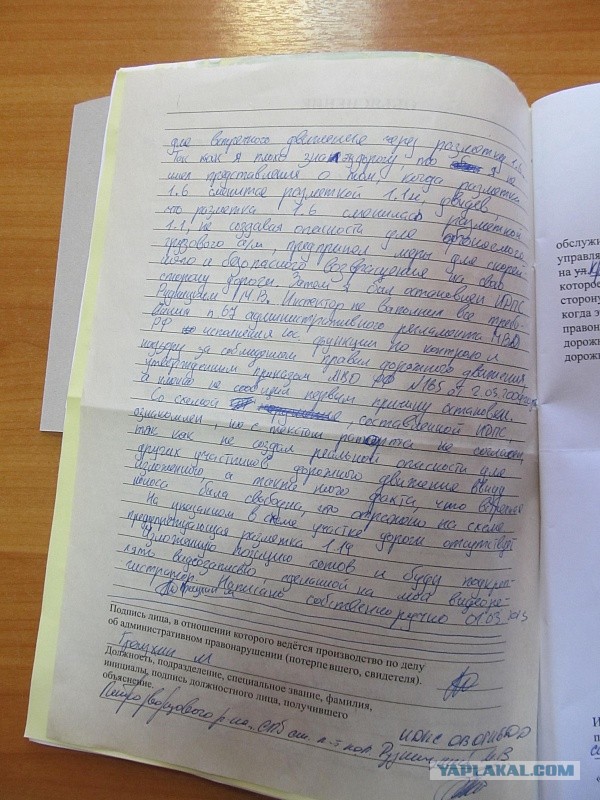 для встречного движения через разметку 1.1.
Так как я плохо знал эту дорогу я не
имел представления о том, когда разметка
1.6 сменится разметкой 1.1 и, увидев,
что разметка 1.6 сменилась разметкой
1.1, не создавая опасности для обгоняемого
грузового а/м, предпринял меры для скорей-
шего и безопасного возвращения на свою
сторону дороги. Затем я был остановлен ИДПС
М.В. Инспектор не выполнил все требо-
вания п 67 административного регламента МВД
РФ исполнения гос. функции по контролю и
надзору за соблюдением правил дорожного движения
утвержденным приказом РФ №185 от 2.03.2009
а именно не сообщил первым причину остановки.
Со схемой составленной ИДПС,
ознакомлен, но с текстом рапорта не согласен,
так как не создал реальной опасности для
других участников дорожного движения ввиду
изложенного, а также того факта, что встречная
полоса была свободна, что отражено на схеме.
На указанном в схеме участке дороги отсутствует
предупреждающая разметка 1.19
Изложенную позицию готов и буду подкреп-
лять видеозаписью, сделанной на мой видеоре-
гистратор. Написано собственноручно 01.03.
Подпись лица, в отношении которого ведётся производство по делу
об административном правонарушении (потерпевшего, свидетеля).
Должность, подразделение, специальное звание, фамилия,
инициалы, подпись должностного лица, получившего
объяснение.
обслужи
управля
на
которое
сторону
когда э
правон
дорожн
дорожн
YAPLAKAL.COM